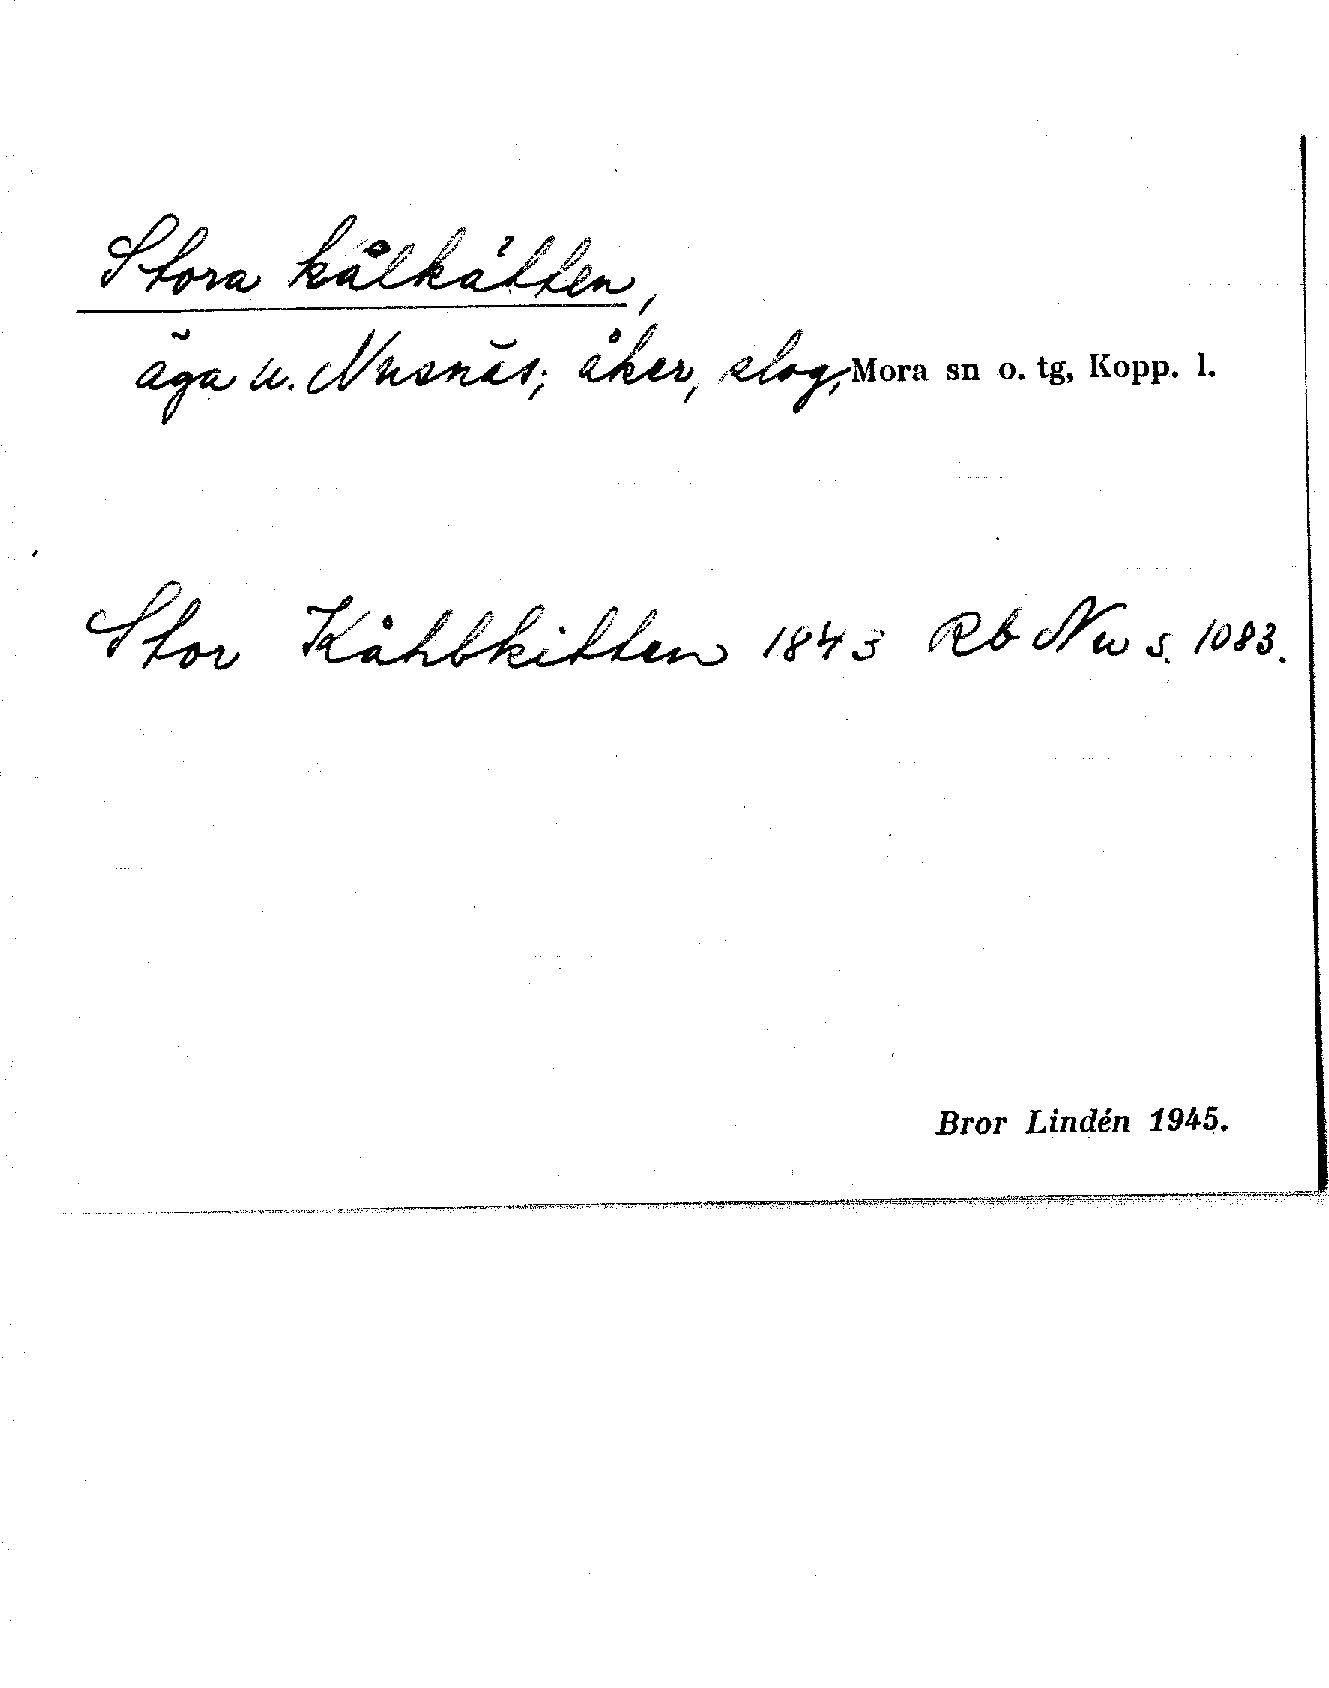 Stora kålkätten,
äga u. Nusnäs; åker, slog, Mora sn o. tg, Kopp. l.
Stor Kåhlkitten 1843 Rb Nu s. 1083.
Bror Lindén 1945.